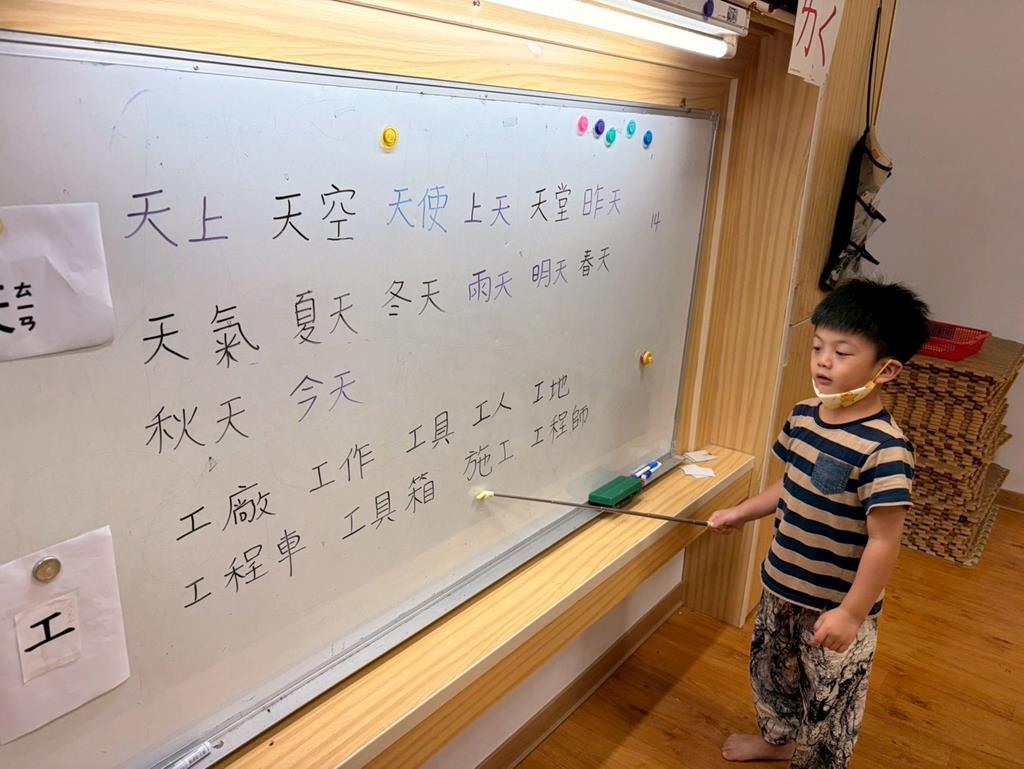 ㄌく
天上 天空 天使 上天 天堂 昨天 14
天氣 夏天 冬天 雨天 明天 春天
ㄊㄧㄢ
秋天 今天
工廠 工作 工具 工人 工地
工程車 工具箱 施工 工程師
工